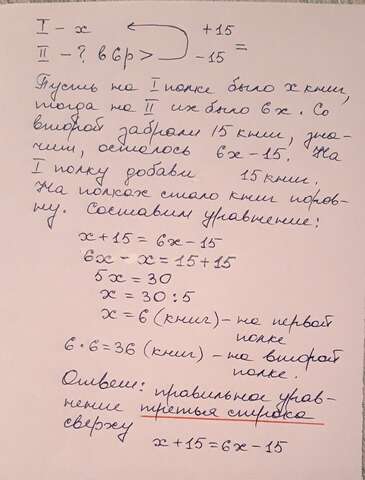 I – x +15
II – ? в 6р > – 15 =
Пусть на I полке было x книг,
тогда на II их было 6x. Со
второй забрали 15 книг, зна-
чит, осталось 6x – 15. На
I полку добави 15 книг.
На полках стало книг поров-
ну. Составим уравнение:
x + 15 = 6x – 15
6x – x = 15 + 15
5x = 30
x = 30 : 5
x = 6 (книг) – на первой
полке
6 · 6 = 36 (книг) – на второй
полке.
Ответ: правильное урав-
нение третья строка
сверху
x + 15 = 6x – 15